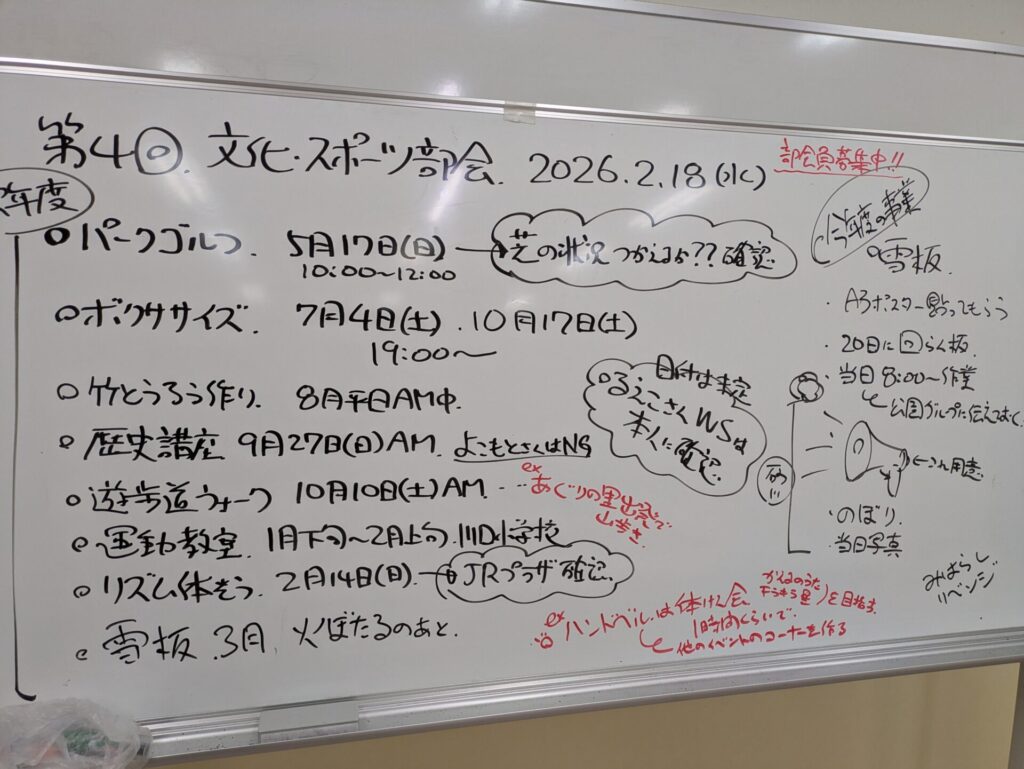 第4回 文化・スポーツ部会. 2026.2.18(水)
部会員募集中!!
年度
○パークゴルフ. 5月17日(日)
10:00~12:00
芝の状況つかえるか??確認.
○ボクササイズ. 7月4日(土).10月17日(土)
19:00~
○竹とうろう作り. 8月平日AM中.
日付は未定
○るえこさんWSは
本人に確認.
○歴史講座 9月27日(日)AM. よこもとさんはNG
○遊歩道ウォーク 10月10日(土)AM.
ex
あぐりの里出発で
山歩き.
○運動教室. 1月下旬~2月上旬. 小学校
○リズム体そう. 2月14日(日).
JRプラザ確認.
○雪板.3月, 火ぼたるのあと.
ex
ハンドベル.は体けん会
1時間くらいで.
他のイベントのコーナーを作る
きらきら星
を目指す
今年度の事業
○雪板.
・A3ポスター貼ってもらう
・20日に回らん板.
・当日8:00~作業
公園グループに伝えておく
砂!!
←これ用意.
・のぼり.
・当日写真
みはらし
リベンジ